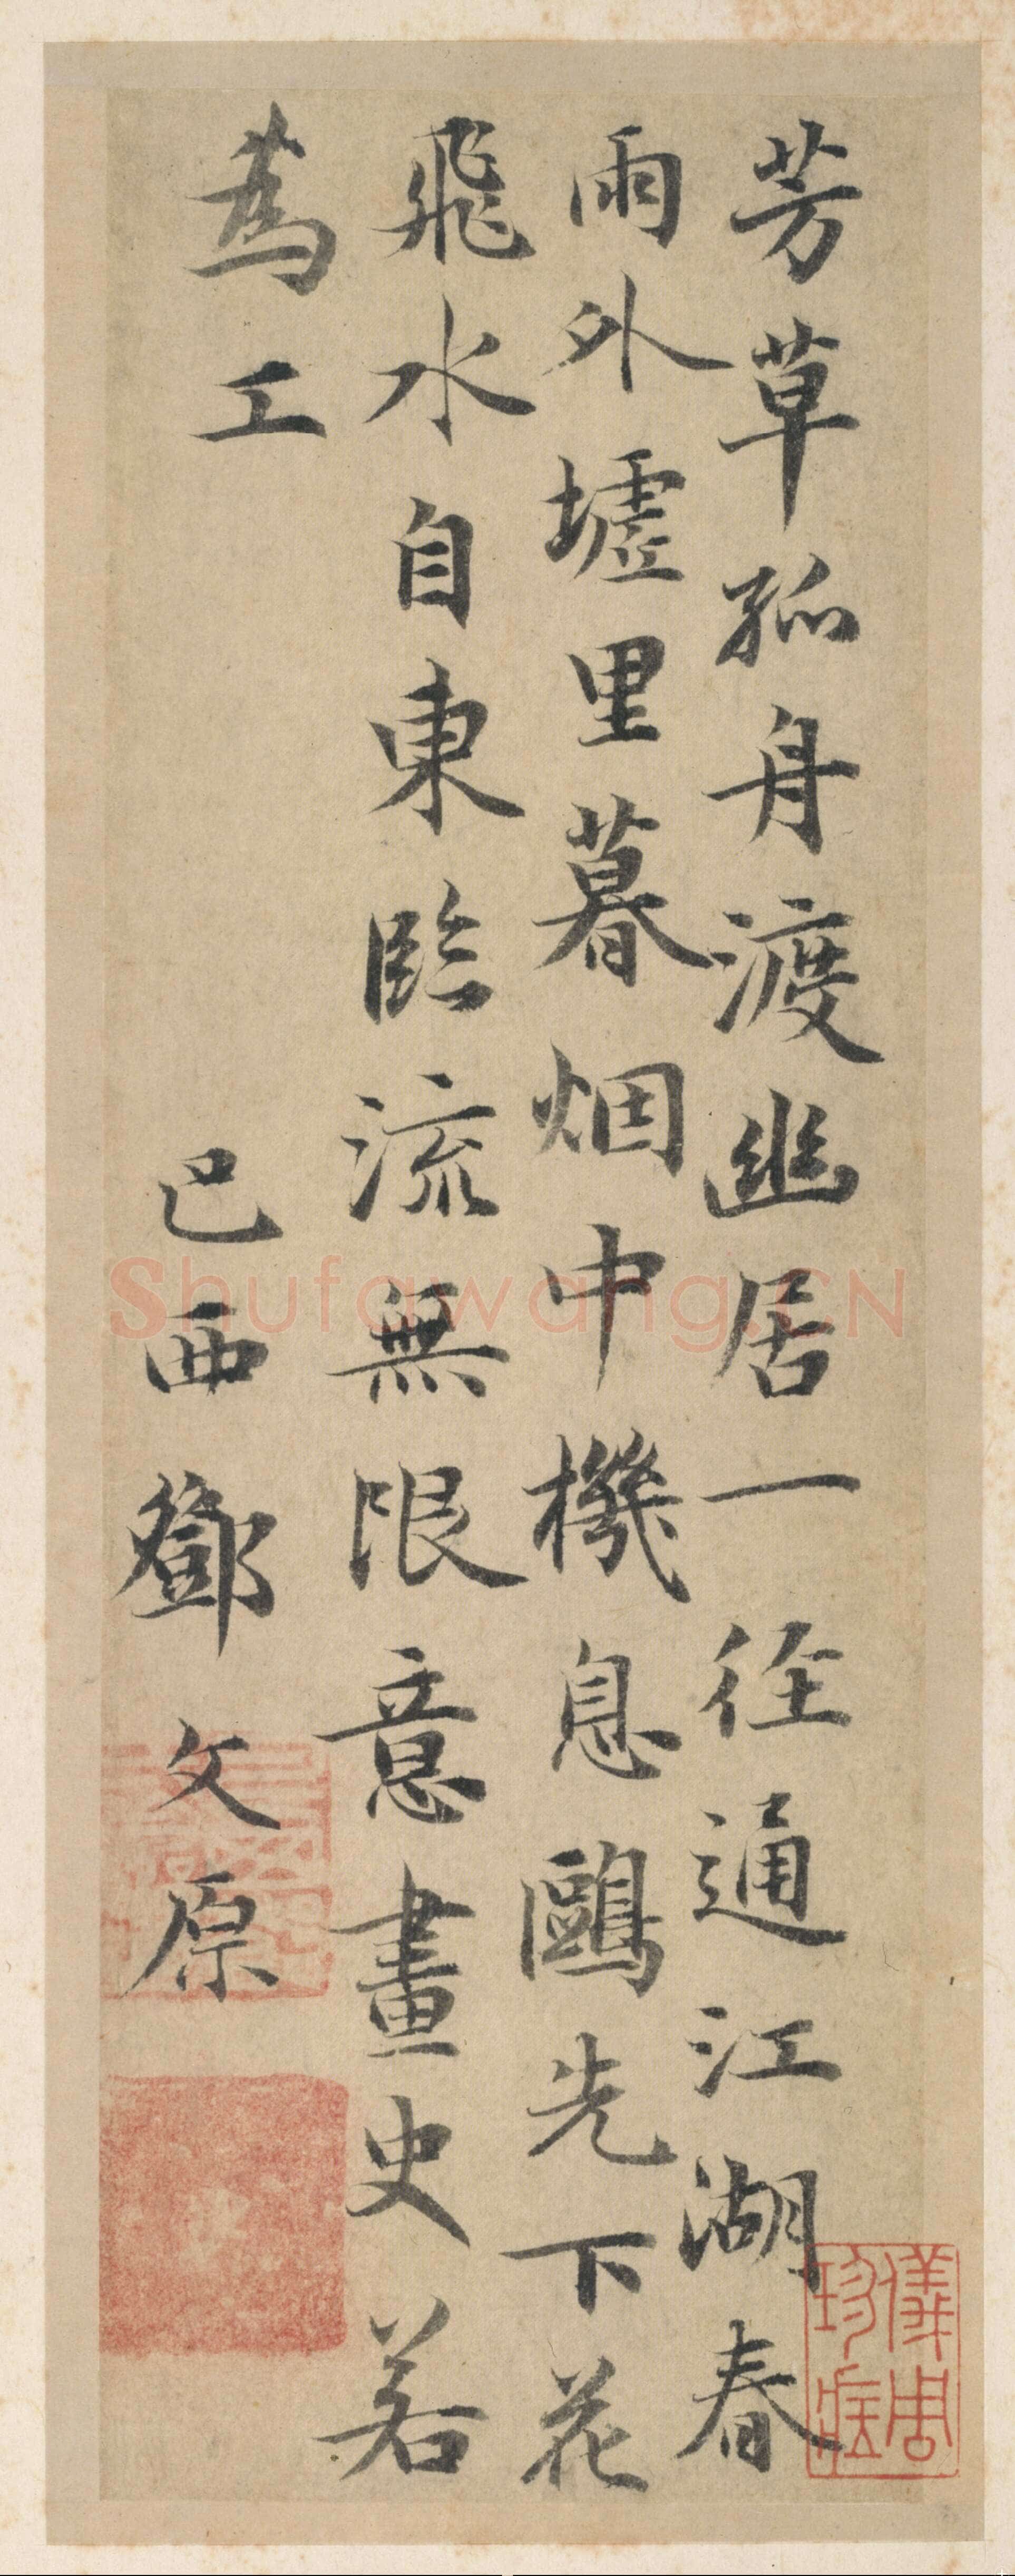 芳草孤舟渡幽居一徑通江湖春
雨外墟里暮烟中機息鷗先下花
飛水自東臨流無限意畫史若
為工
巴西鄧文原
儀周珍藏
Shufawang.CN